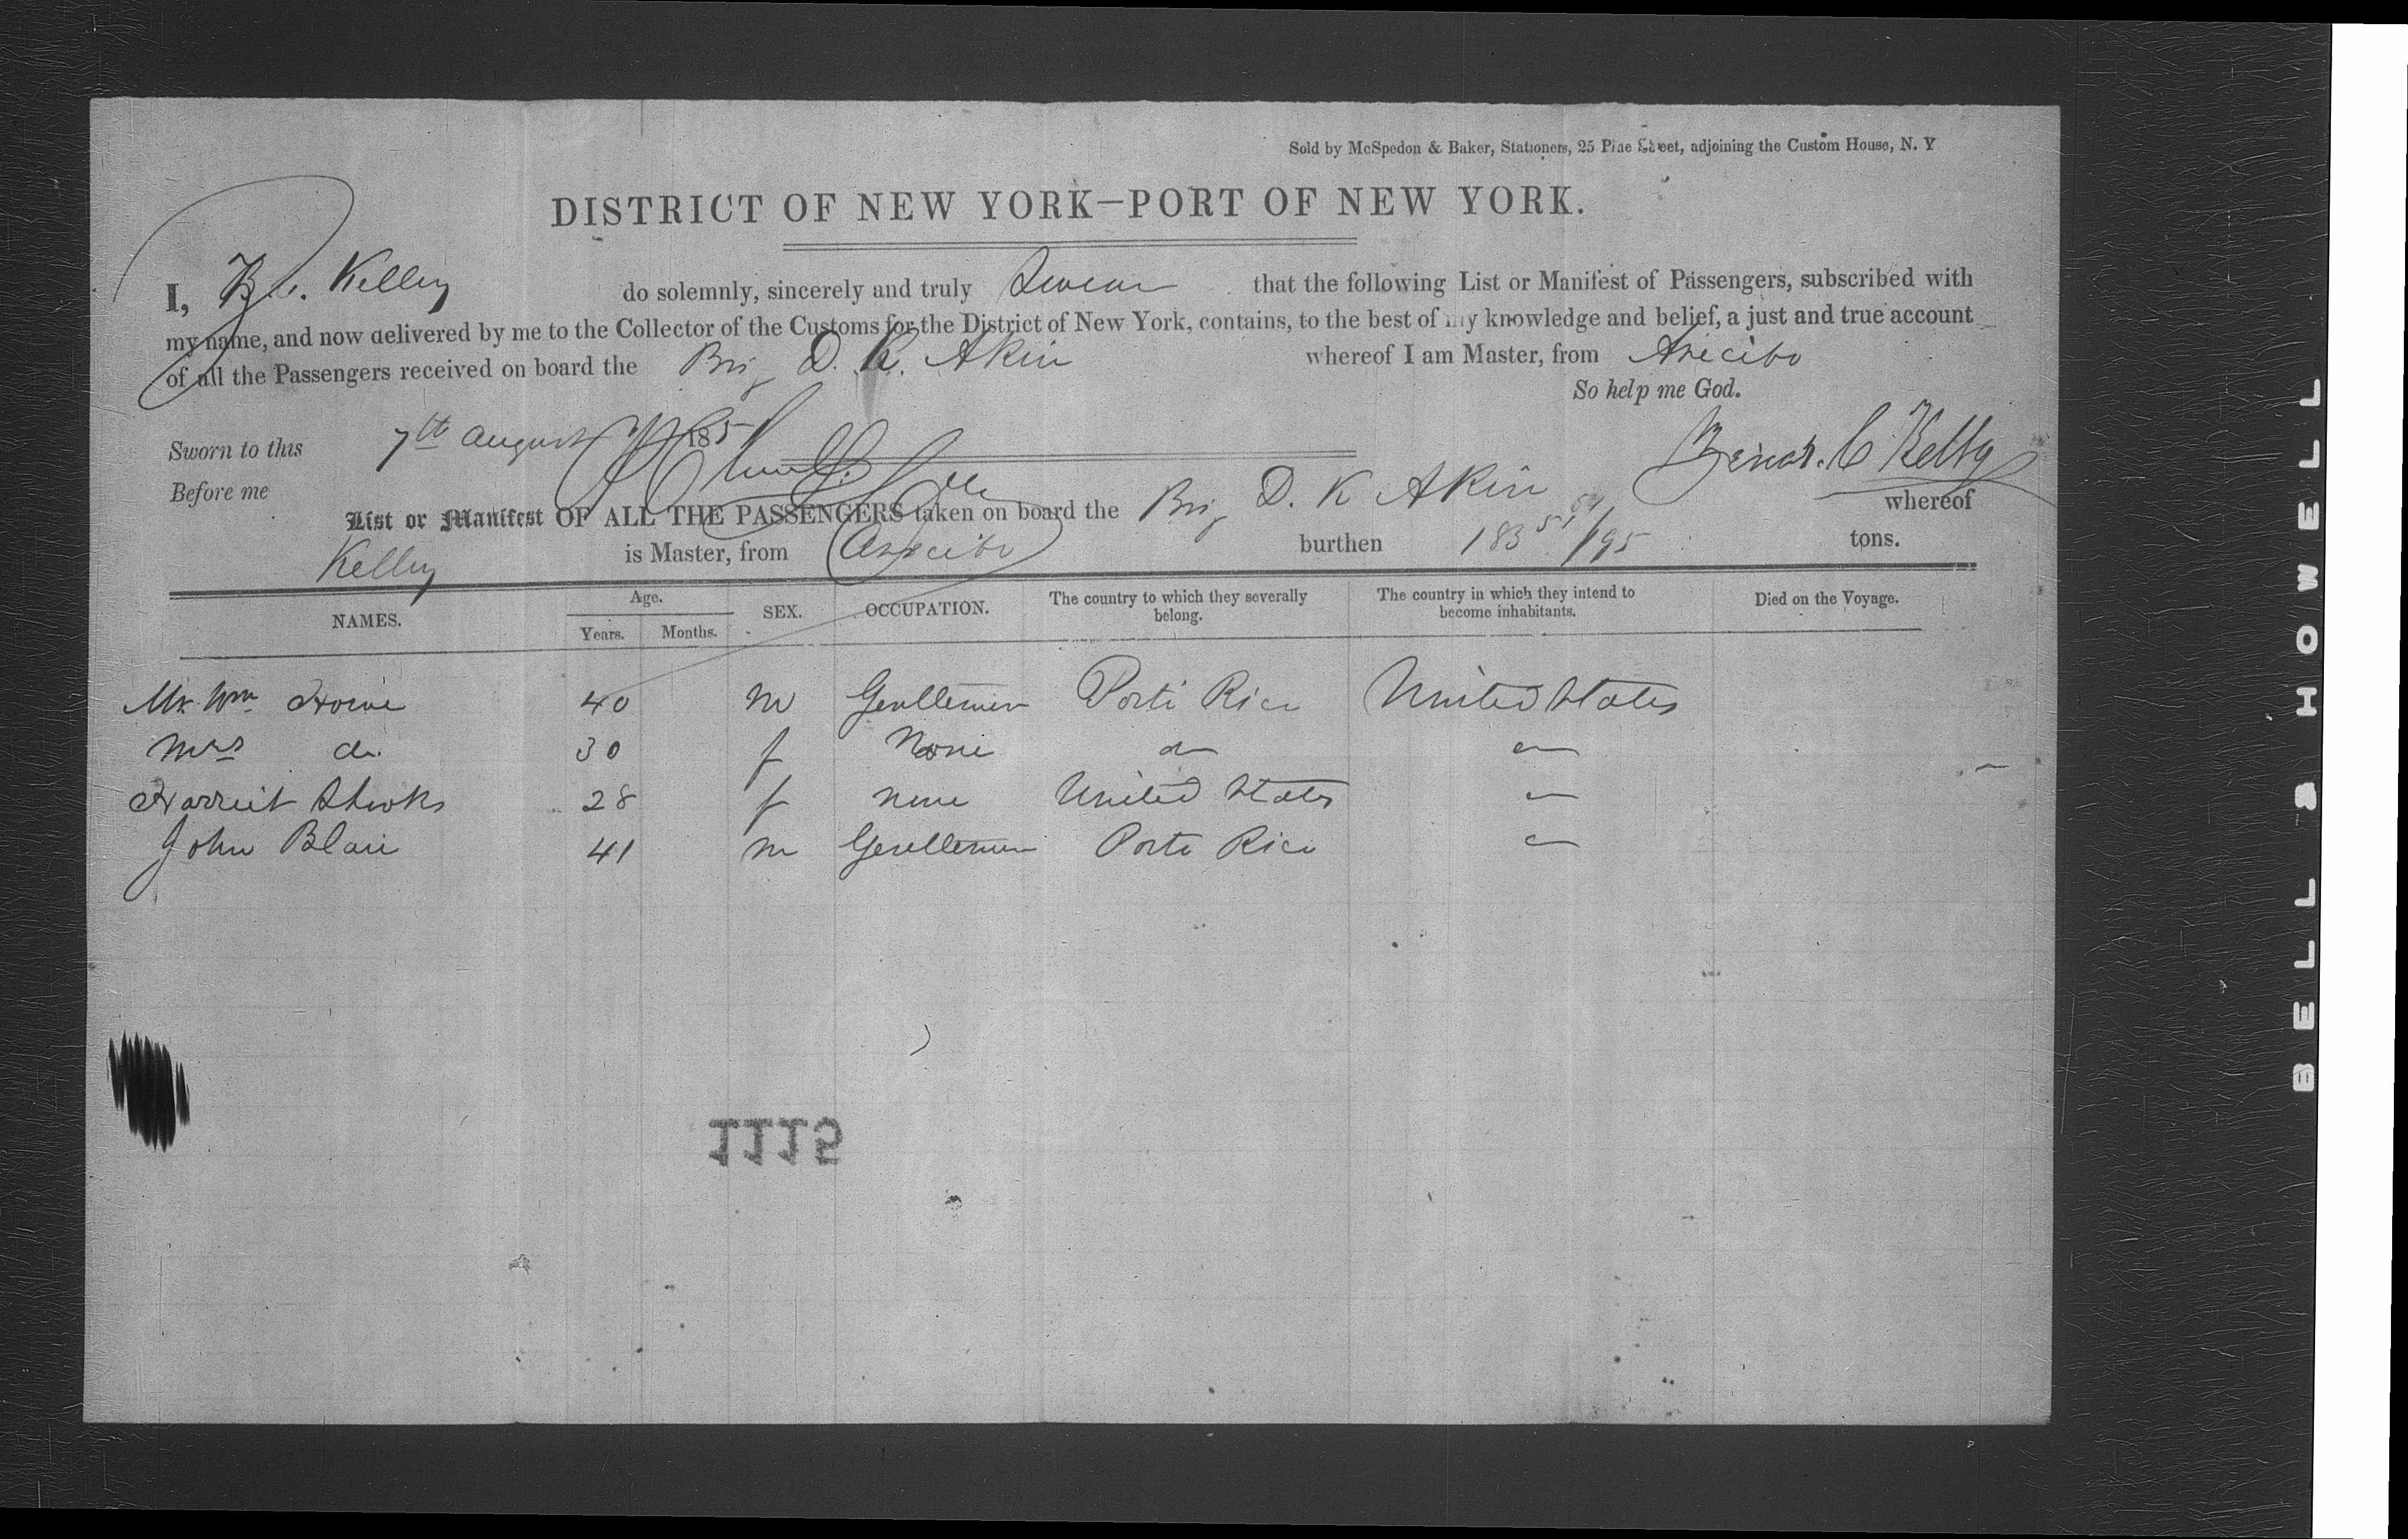 Sold by McSpedon & Baker, Stationers, 25 Pine Street, adjoining the Custom House, N. Y
DISTRICT OF NEW YORK—PORT OF NEW YORK.
I, Kelley do solemnly, sincerely and truly Swear that the following List or Manifest of Passengers, subscribed with
my name, and now delivered by me to the Collector of the Customs for the District of New York, contains, to the best of my knowledge and belief, a just and true account
of all the Passengers received on board the Brig D. K. Akin whereof I am Master, from Arecibo
So help me God.
Sworn to this 7th August 185
Before me
C Kelley
List or Manifest OF ALL THE PASSENGERS taken on board the Brig D. K Akin whereof
Kelley is Master, from Arecibo burthen 183 /95 tons.
NAMES. Age. Years. Months. SEX. OCCUPATION. The country to which they severally belong. The country in which they intend to become inhabitants. Died on the Voyage.
Mr Wm Howe 40 m Gentlemen Porto Rico United States
Mrs do 30 f None do
Harriet 28 f none United States
John Blair 41 m Gentlemen Porto Rico
1115
BELL & HOWELL